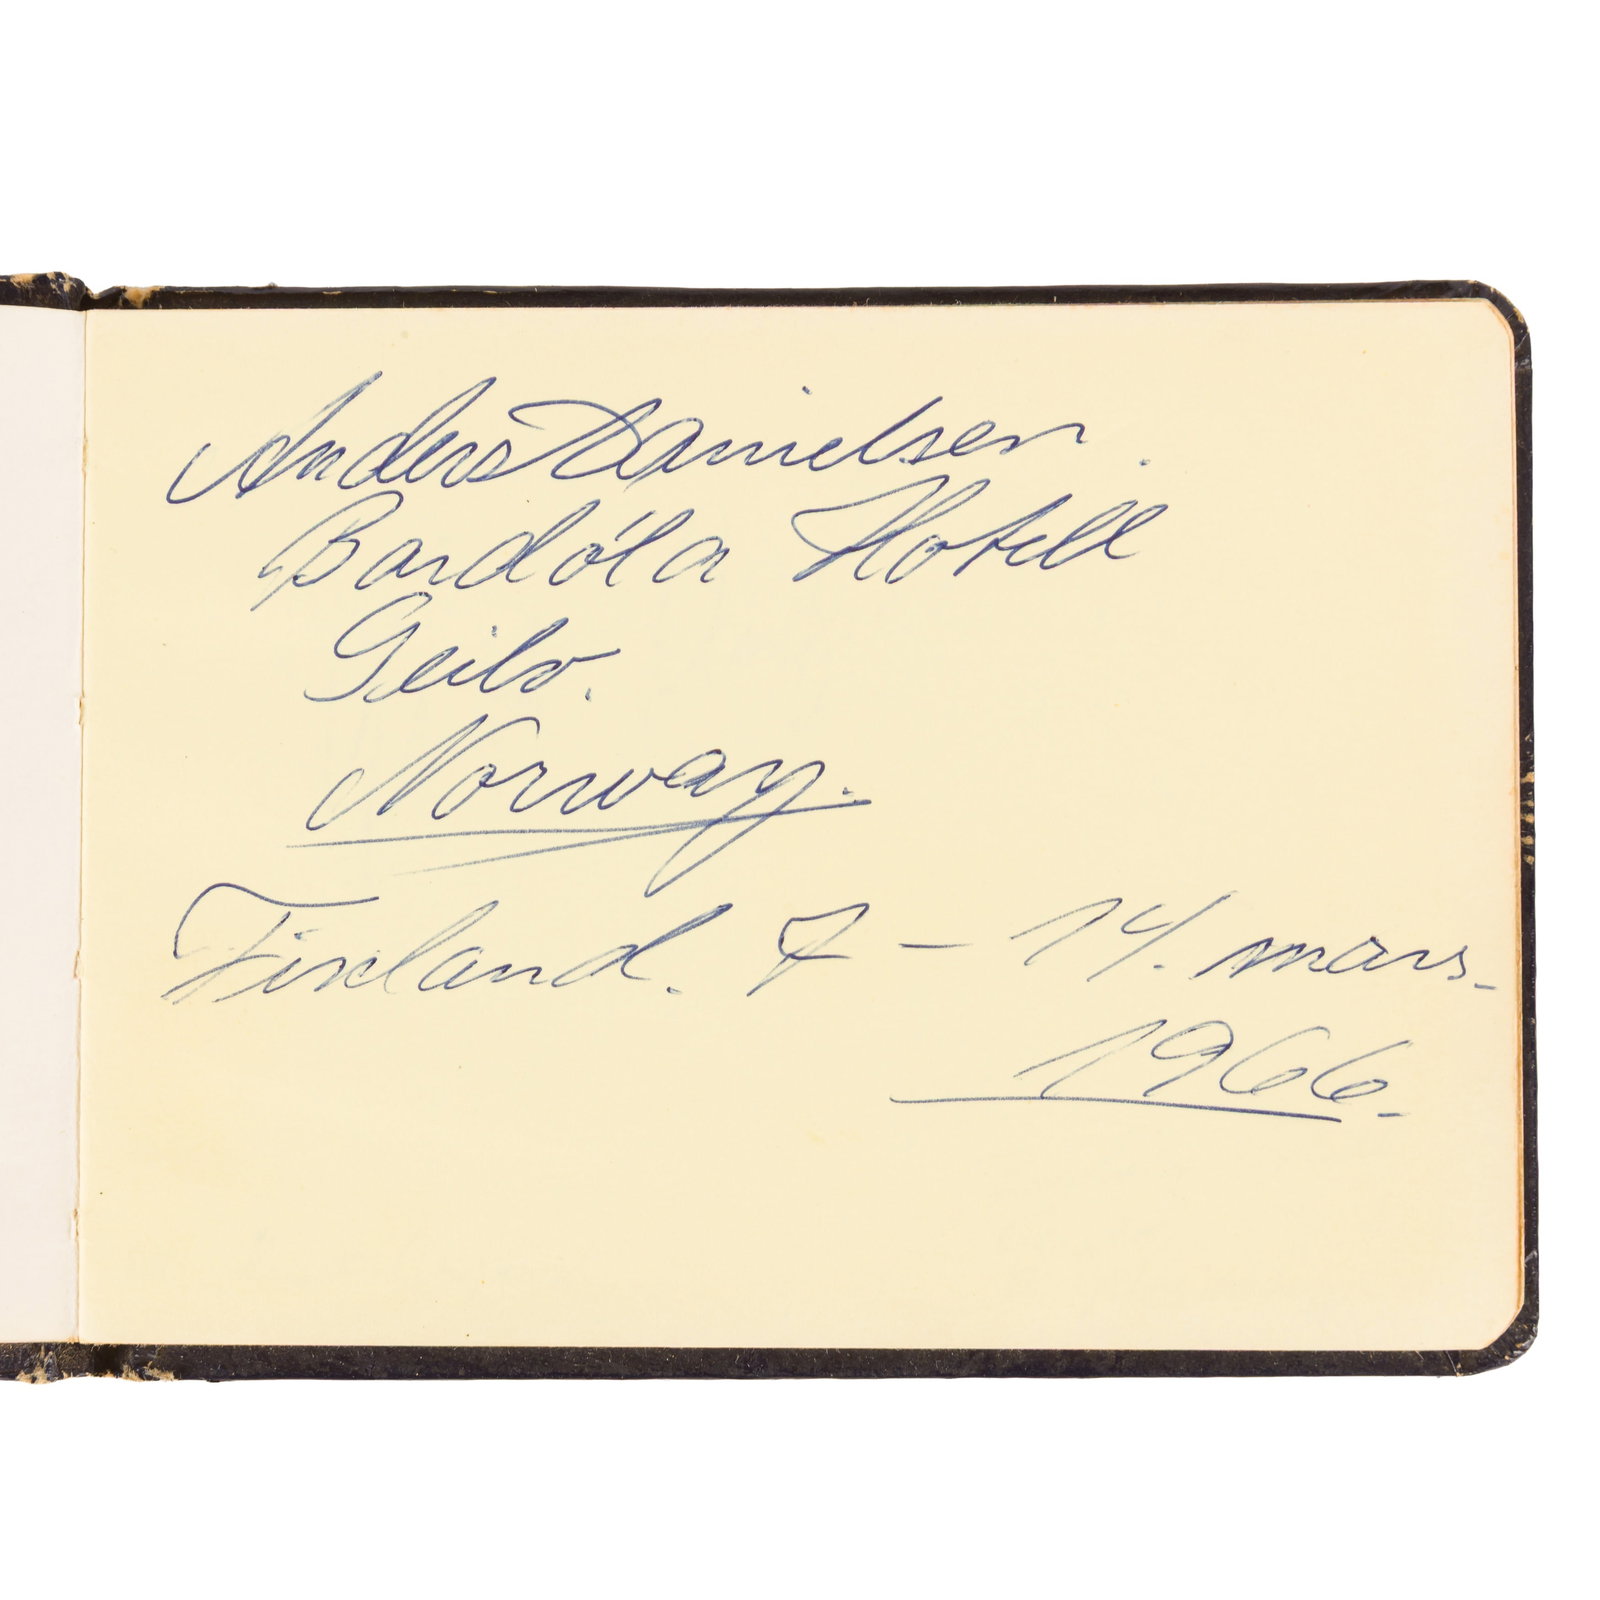 Anders Danielsen.
Bardóla Hotell
Geilo.
Norway.
Finland. 7 – 14. mars.
1966.